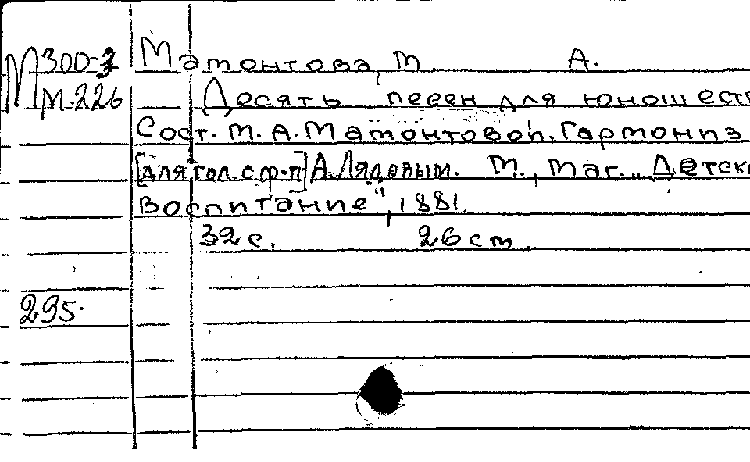 М 300-3 Мамонтова, М. А.
М-226 Десять песен для юношест
Сост. М. А. Мамонтовой. Гармониз
[для гол. с ф-п] А. Лядовым. М., маг. „Детск
Воспитание", 1881.
32 с. 26 см.
295.